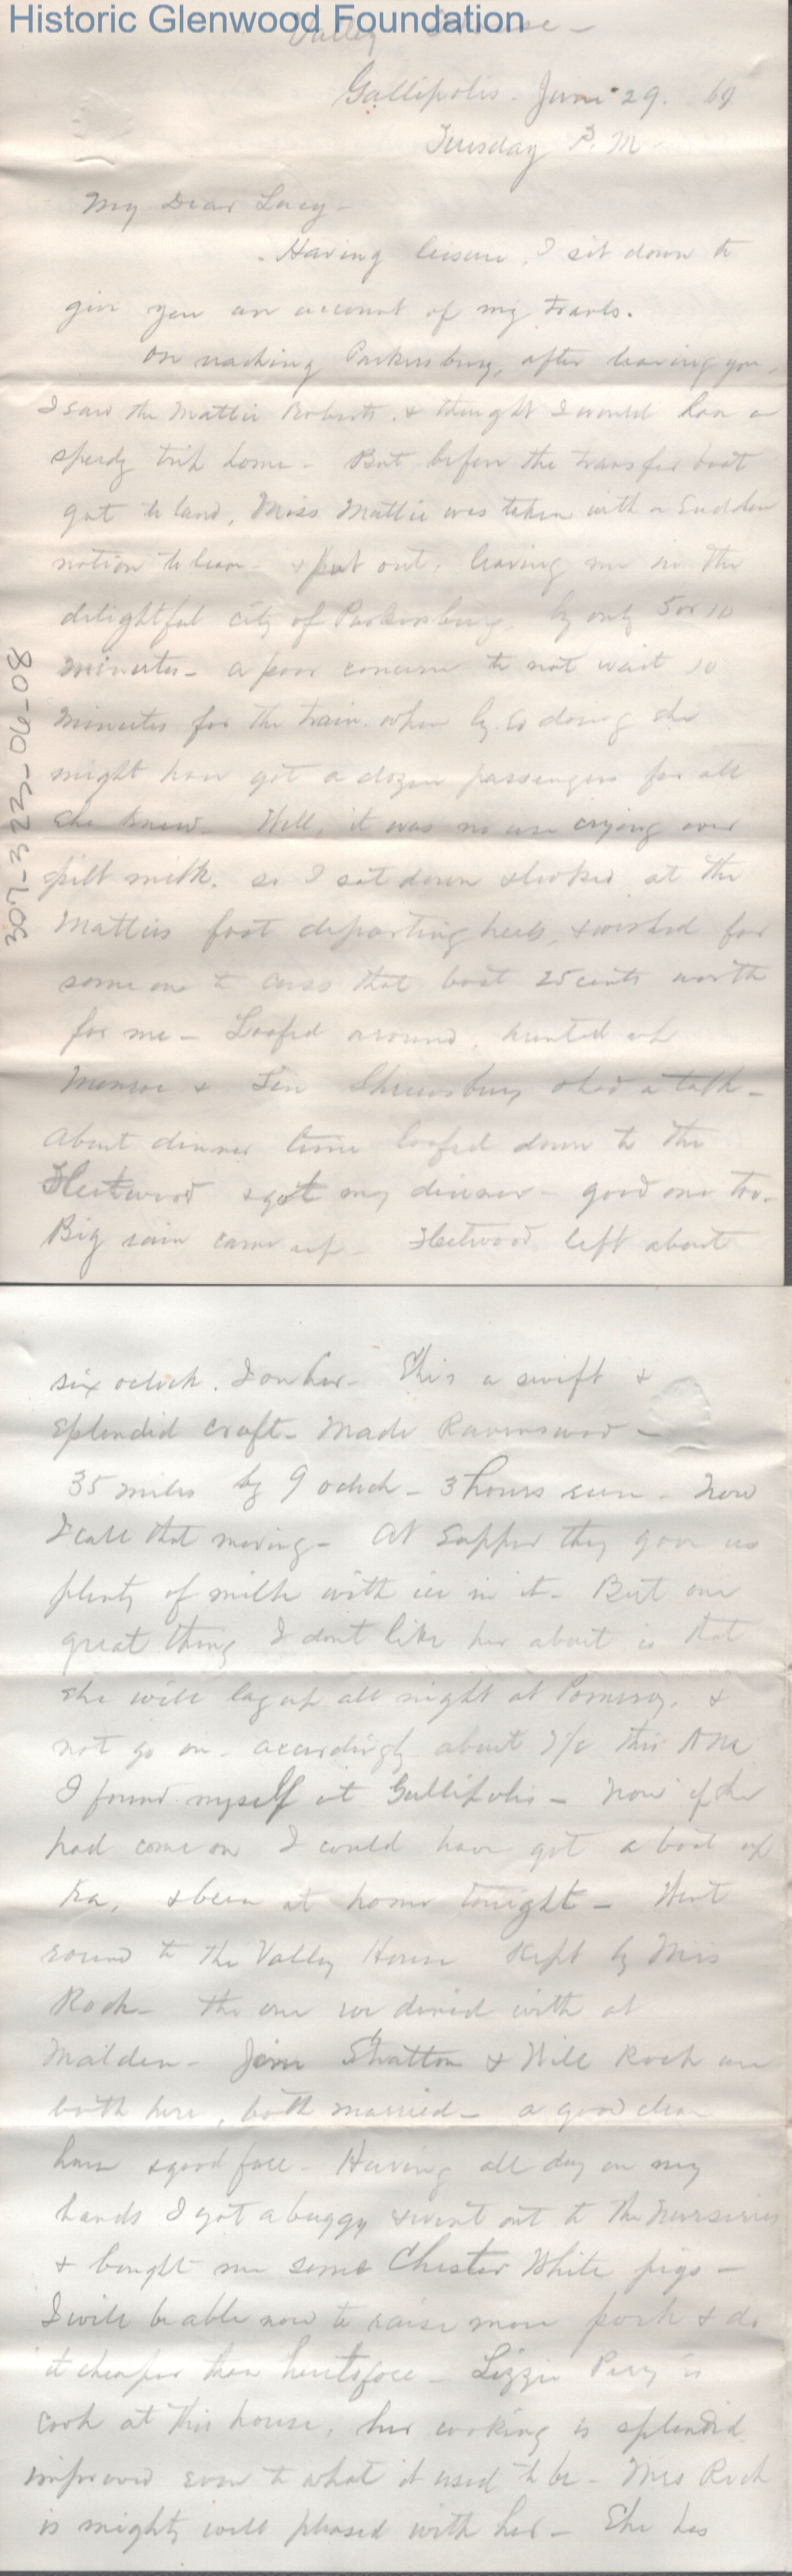 Historic Glenwood Foundation
Valley House -
Gallipolis. June 29. 69
Tuesday P. M
My Dear Lucy -
Having leisure, I sit down to
give you an account of my travels.
On reaching Parkersburg, after leaving you,
I saw the Mattie Roberts, & thought I would have a
speedy trip home - But before the transfer boat
got to land, Miss Mattie was taken with a sudden
notion to leave - & put out, leaving me in the
delightful city of Parkersburg, by only 5 or 10
minutes - a poor concern to not wait 10
minutes for the train. when by so doing she
might have got a dozen passengers for all
she knew - Well, it was no use crying over
spilt milk. so I sat down & looked at the
Matties fast departing heels, & wished for
some one to cuss that boat 25 cents worth
for me - Loafed around, hunted up
Monroe & Shrewsbury & had a talk -
About dinner time loafed down to the
Fleetwood & got my dinner - good one too -
Big rain came up - Fleetwood left about
307-323-06-08
six oclock. I on her - She is a swift &
splendid craft - Made Ravenswood -
35 miles by 9 oclock - 3 hours run - Now
I call that moving - At supper they gave us
plenty of milk with ice in it - But one
great thing I dont like her about is that
she will lay up all night at Pomeroy, &
not go on - accordingly about this AM
I found myself at Gallipolis - Now if she
had come on I could have got a boat up
Ka, & been at home tonight - Went
round to the Valley House kept by Mrs
Rock - the one we dined with at
Malden - Jim Stratton & Will Rock are
both here, both married - a good clean
house & good fare - Having all day on my
hands I got a buggy & went out to the nurseries
& bought me some Chester White pigs -
I will be able now to raise more pork & do
it cheaper than heretofore - Lizzie Perry is
cook at this house, her cooking is splendid
improved even to what it used to be - Mrs Rock
is mighty well pleased with her - She has